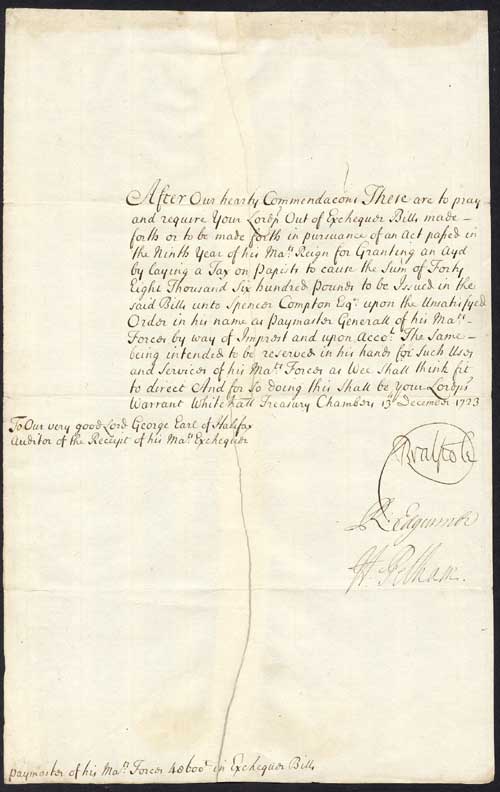 After Our hearty Commendacons These are to pray
and require Your Lordp Out of Exchequer Bills made
forth or to be made forth in pursuance of an Act passed in
the Ninth Year of his Mats Reign for Granting an Ayd
by laying a Tax on Papists to cause the Sum of Forty
Eight Thousand Six hundred Pounds to be Issued in the
said Bills unto Spencer Compton Esqr upon the Unsatisfyed
Order in his name as Paymaster Generall of his Mats
Forces by way of Imprest and upon Accot. The Same
being intended to be reserved in his hands for Such Uses
and Services of his Mats Forces as Wee Shall think fit
to direct And for So doing this Shall be your Lordps
Warrant Whitehall Treasury Chambers 13th December 1723
To Our very good Lord George Earl of Halifax
Auditor of the Receipt of his Mats Exchequer
R Walpole
R: Edgcumbe
H. Pelham.
Paymaster of his Mats Forces 48600l in Exchequer Bills